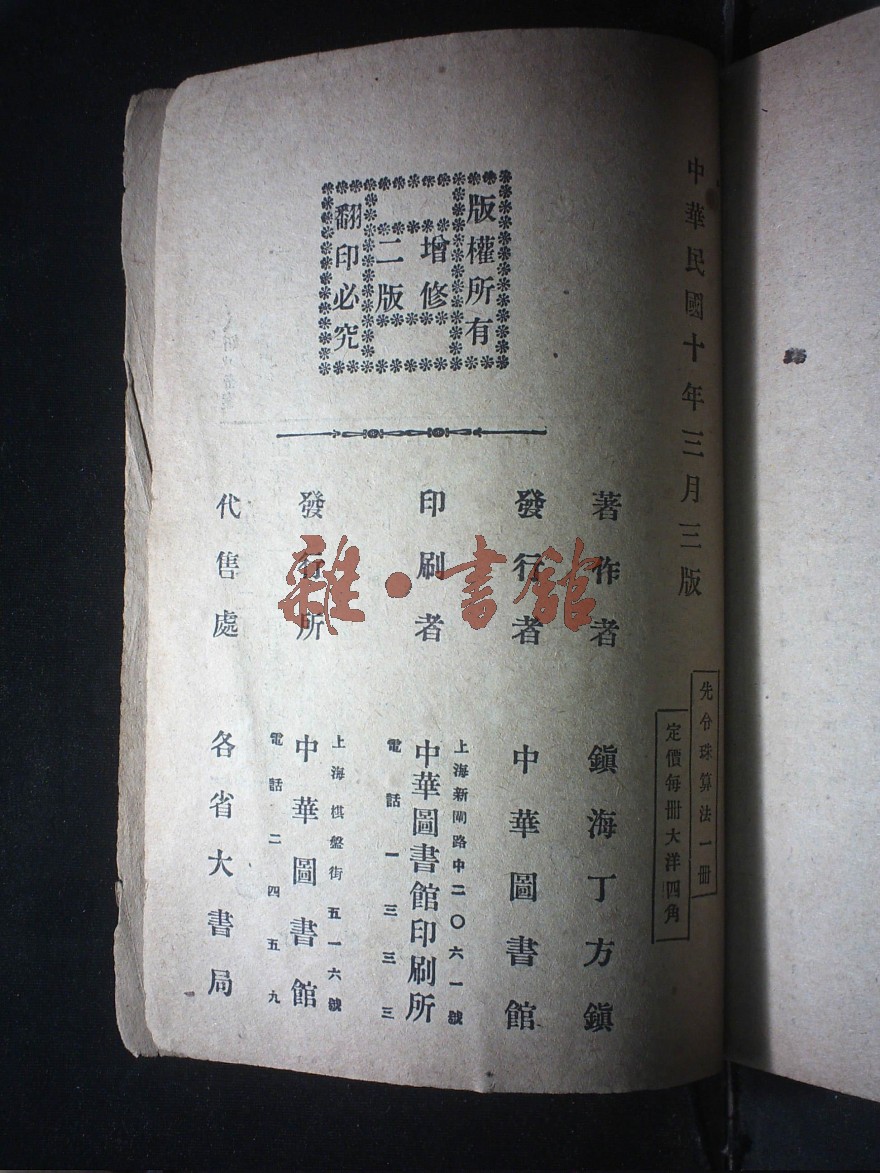 中華民國十年三月三版
先分珠算法一册
定價每册大洋四角
版權所有
增修
二版
翻印必究
著作者 鎭海丁方鎭
發行者 中華圖書館
印刷者 上海新閘路中二〇六一號
中華圖書館印刷所
電話一三三三
發行所 上海棋盤街五一六號
中華圖書館
電話二四五九
代售處 各省大書局
雜·書館